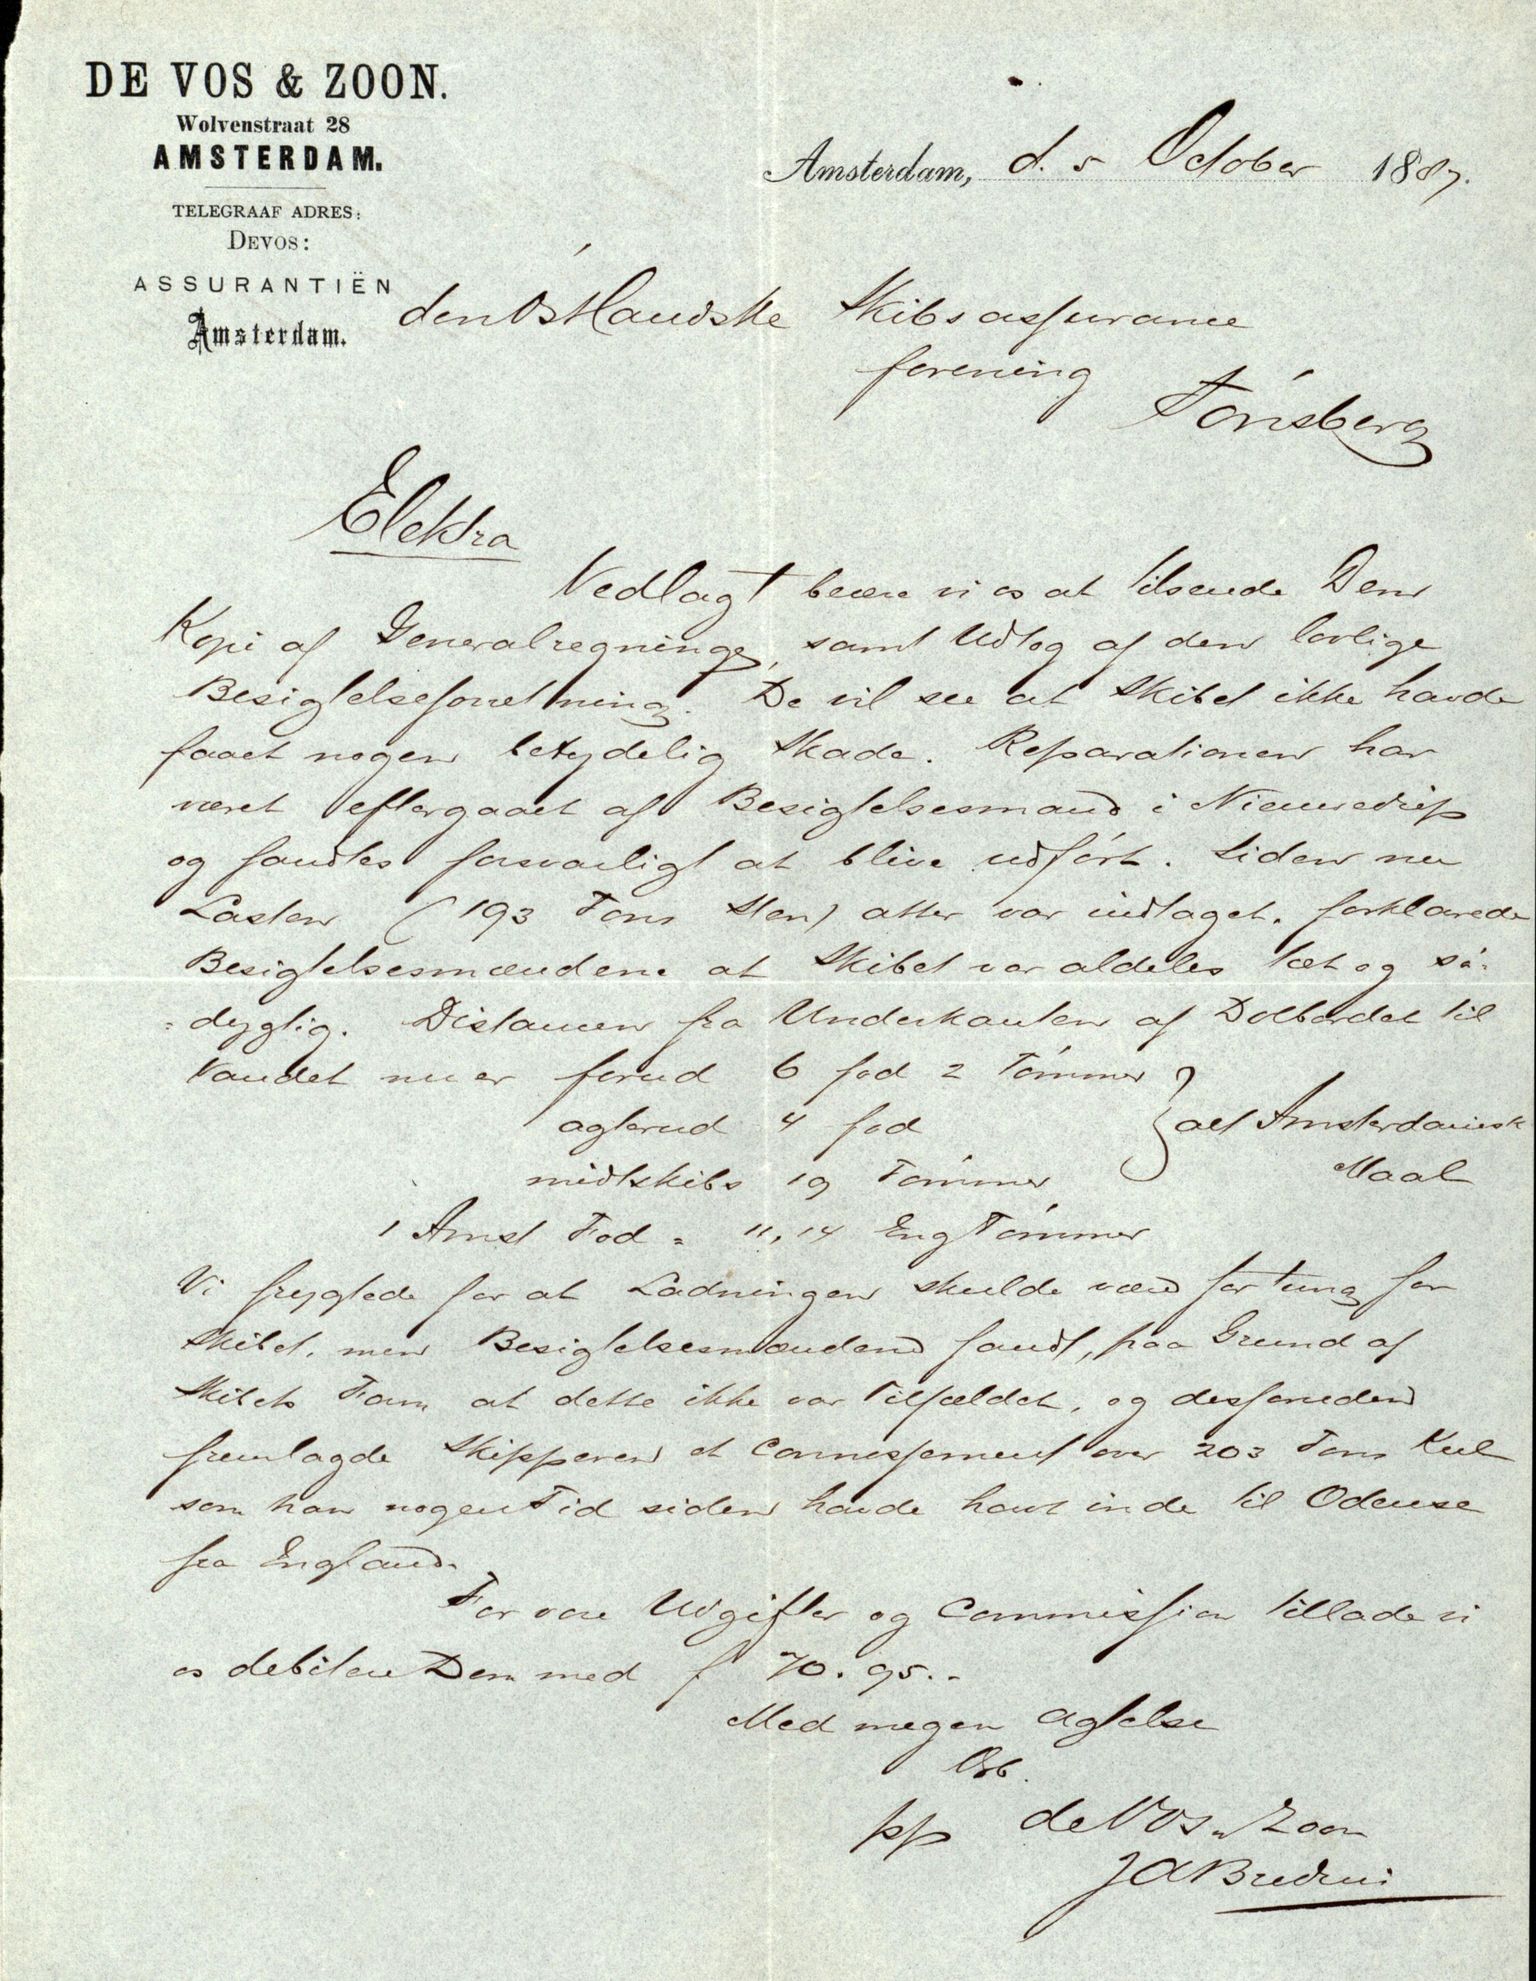 DE VOS & ZOON.
Wolvenstraat 28
AMSTERDAM.
TELEGRAAF ADRES:
DEVOS:
ASSURANTIËN
Amsterdam.
Amsterdam, d. 5 October 1887.
den Østlandske Skibsassurance
forening
Tønsberg
Elektra
Vedlagt beære vi os at tilsende Dem
Kopi af Generalregninge, samt Udtog af den lovlige
Besigtelsesforretning. De vil see at Skibet ikke havde
faaet nogen betydelig Skade. Reparationen har
været eftergaaet af Besigtelsesmænd i Nieuwediep
og fandtes forsvarligt at blive udført. Siden nu
Lasten (193 Tons Sten) atter var indtaget, forklarede
Besigtelsesmændene at Skibet var aldeles tæt og sø=
=dygtig. Distancen fra Underkanten af Dolbordet til
Vandet nu er forud 6 fod 2 Tommer
agterud 4 fod } alt Amsterdamsk
midtskibs 19 Tommer Maal
1 Amst Fod = 11,14 Eng Tommer
Vi frygtede for at Ladningen skulde være for tung for
Skibet, men Besigtelsesmændene fandt, paa Grund af
Skibets Form at dette ikke var Tilfældet, og desforuden
fremlagde Skipperen et Connossement over 203 Tons Kul
som han nogen Tid siden havde havt inde til Odense
fra England.
For vore Udgifter og Commission tillade vi
os debitere Dem med f 70.95.-
Med megen Agtelse
Ærb.
pp de Vos & Zoon